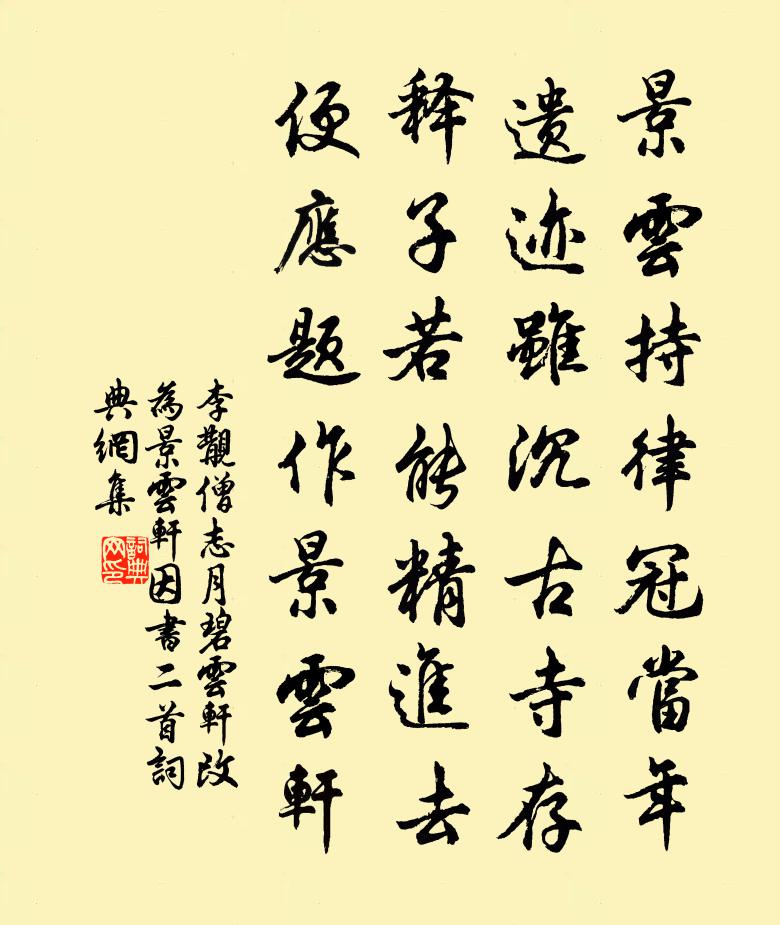 景雲持律冠當年
遺迹雖沉古寺存
釋子若能精進去
便應題作景雲軒
李觀僧志月碧雲軒改
為景雲軒因書二首詞
典網集
詞典
网印